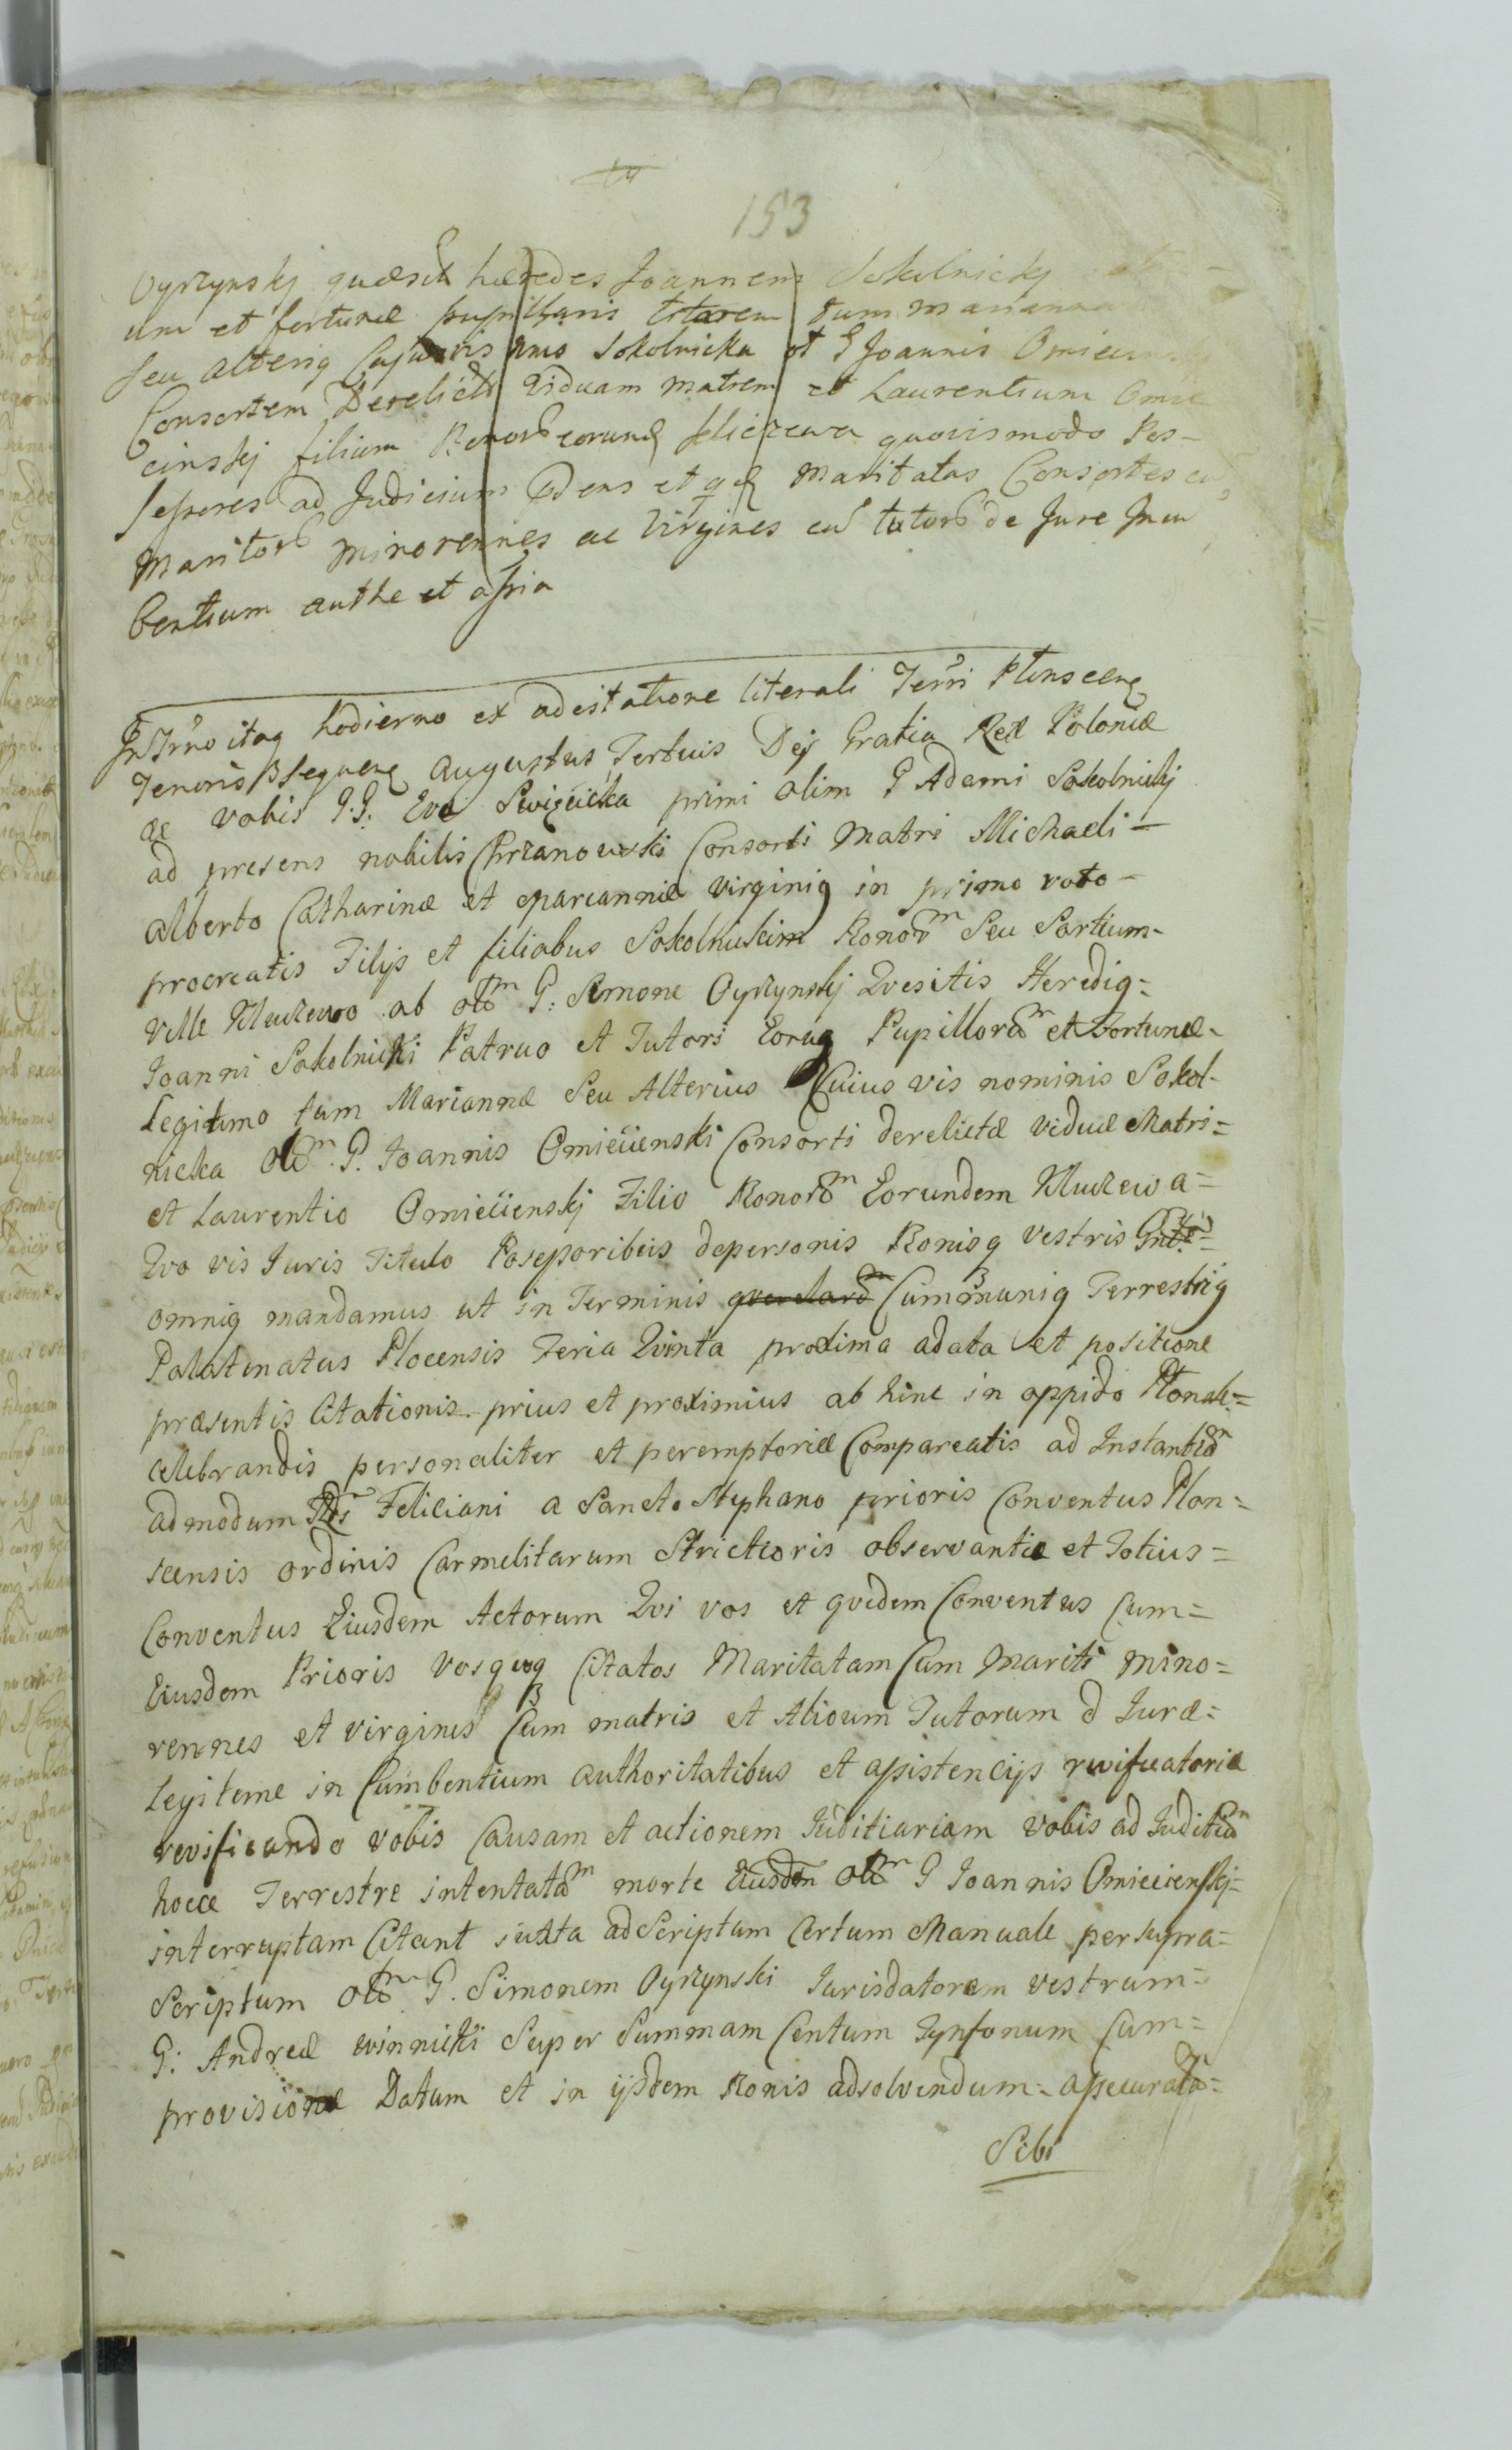 153
Oyrzynskj quæsit hæredes Joannem Sokolnickj
um et fortunæ pupillaris tutorem tum Mariann
seu alterig Cujusvis Sokolnicka ol G Joannis Omiecins
Consortem Derelict Viduam matrem et Laurentium Omie
cinskj filium Bonor eorund Kliczewa quovismodo Pos-
sessores ad Judicium maritatas Consortes cu
maritor minorennes ac Virgines cu tutor de Jure Incu
bentium authe et assia
In Trno itaq hodierno ex adcitatione literali Terri Plonscens
Tenoris sequens Augustus Tertius Dej Gratia Rex Poloniæ
æ vobis G.G. Eva primi olim G Adami Sokolnickj
ad presens nobilis Chrzanowski Consorti Matri Michaeli-
Alberto Catharinæ et Mariannæ virginig in primo voto-
procreatis Filijs et filiabus Sokolnickim Bonorm Seu Sortium-
Ville Kluczewo ab olm G: Simone Oyrzynskj Qvesitis Heredig=
Joanni Sokolnicki Patruo et Tutori Eorug Pupillorm et Fortunæ-
Legitimo tam Mariannæ Seu Alterius Cuius vis nominis Sokol-
nicka olm. G. Joannis Omiecienski Consorti derelictæ viduæ Matri=
et Laurentio Omiecienskj Filio Bonorm Eorundem Kluczewa=
Qvo vis Juris Titulo Possessoribus depersonis Bonisq vestris Gnt=
omnig mandamus ut in Terminis querelarm Cummunig Terrestrig
Palatinatus Plocensis Feria Qvinta proxima adata et positione
præsentis Citationis prius et proximius ab hinc in oppido Plonsk=
celebrandis personaliter et peremptoriæ Compareatis ad Instantiam
admodum Feliciani a Sancto Stephano prioris Conventus Plon=
scensis ordinis Carmelitarum Strictioris observantiæ et Totius=
Conventus Eiusdem Actorum Qvi vos et qvidem Conventus Cum=
Eiusdem Prioris Vosq Citatos Maritatam Cum Mariti mino=
rennes et virgines Cum matris et Alioum Tutorum d Juræ=
Legiteme in Cumbentium authoritatibus et assistencijs revificatoriæ
revificando vobis Causam et actionem Juditiariam vobis ad Juditium
hocce Terrestre intentatam morte Eiusdem olm G Joannis Omiecienskj=
interruptam Citant iuxta ad Scriptum Certum Manuale persupra=
Scriptum olm G. Simonem Oyrzynski Jurisdatorem vestrum=
G: Andreæ winnicki Super Summam Centum Tynfonum Cum=
provisione Datum et in ijsdem Bonis adsolvendum= assecuratam=
Sibi